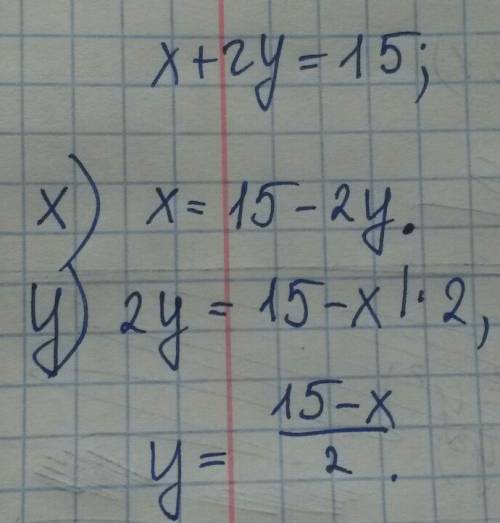 x+2y=15;
x) x=15-2y.
y) 2y=15-x|·2,
y=\frac{15-x}{2}.